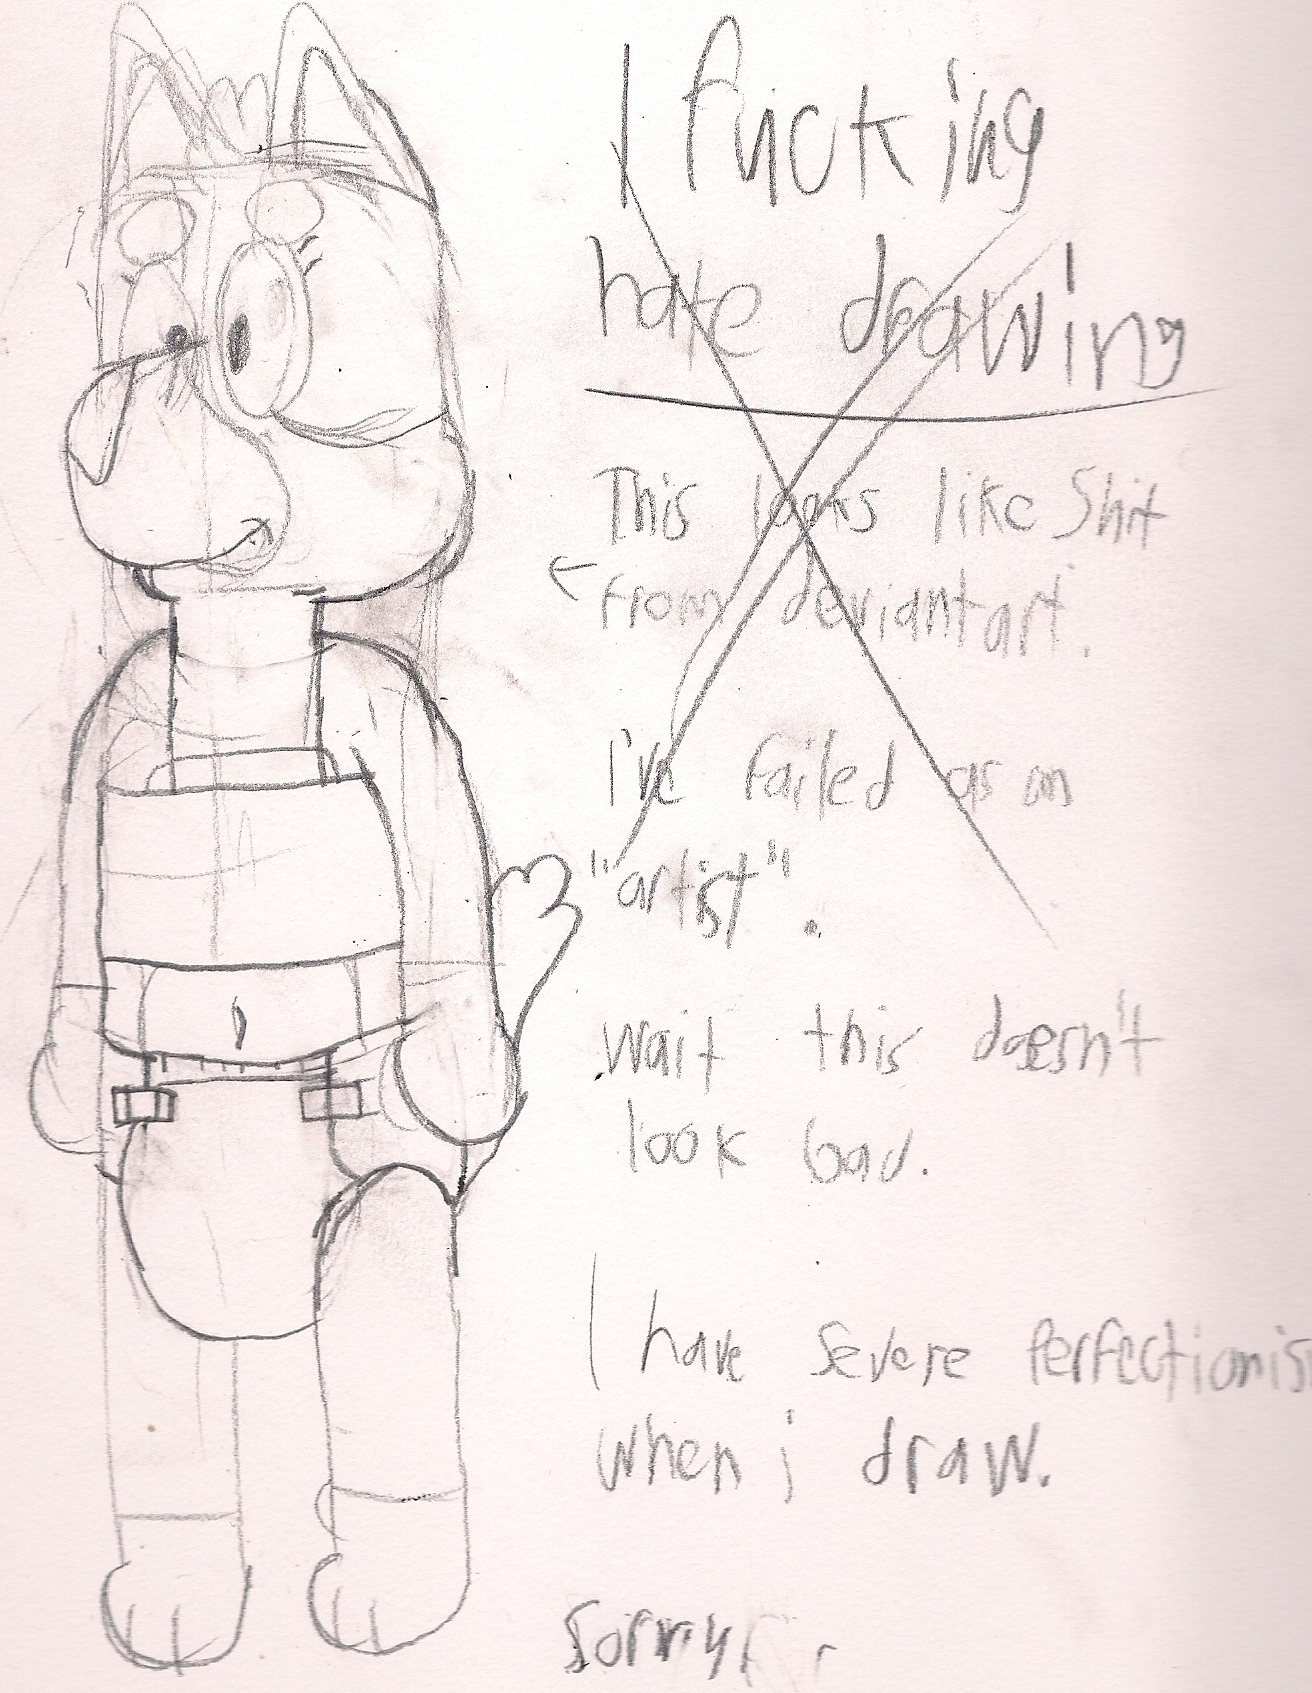 I fucking
hate drawing
This looks like Shit
from deviantart.
I've failed as an
"artist".
wait this doesn't
look bad.
I have severe Perfectionis
when i draw.
Sorry for